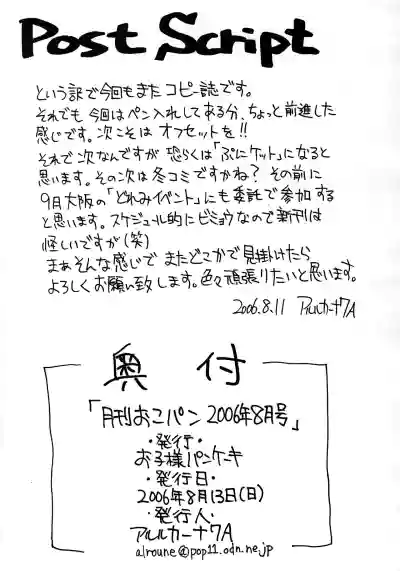 Post Script
という訳で今回もまた コピー誌です。
それでも 今回はペン入れしてある分、ちょっと前進した
感じです。次こそは オフセットを!!
それで次なんですが 恐らくは「ぷにケット」になると
思います。その次は冬コミですかね? その前に
9月大阪の「どれみイベント」にも委託で参加する
と思います。スケジュール的にビミョウなので新刊は
怪しいですが(笑)
まぁそんな感じで またどこかで見掛けたら
よろしくお願い致します。色々頑張りたいと思います。
2006.8.11 アルルカーナ7A
奥付
「月刊おこパン 2006年8月号」
・発行・
お子様パンケーキ
・発行日・
2006年8月13日(日)
・発行人・
アルルカーナ7A
alroune@pop11.odn.ne.jp